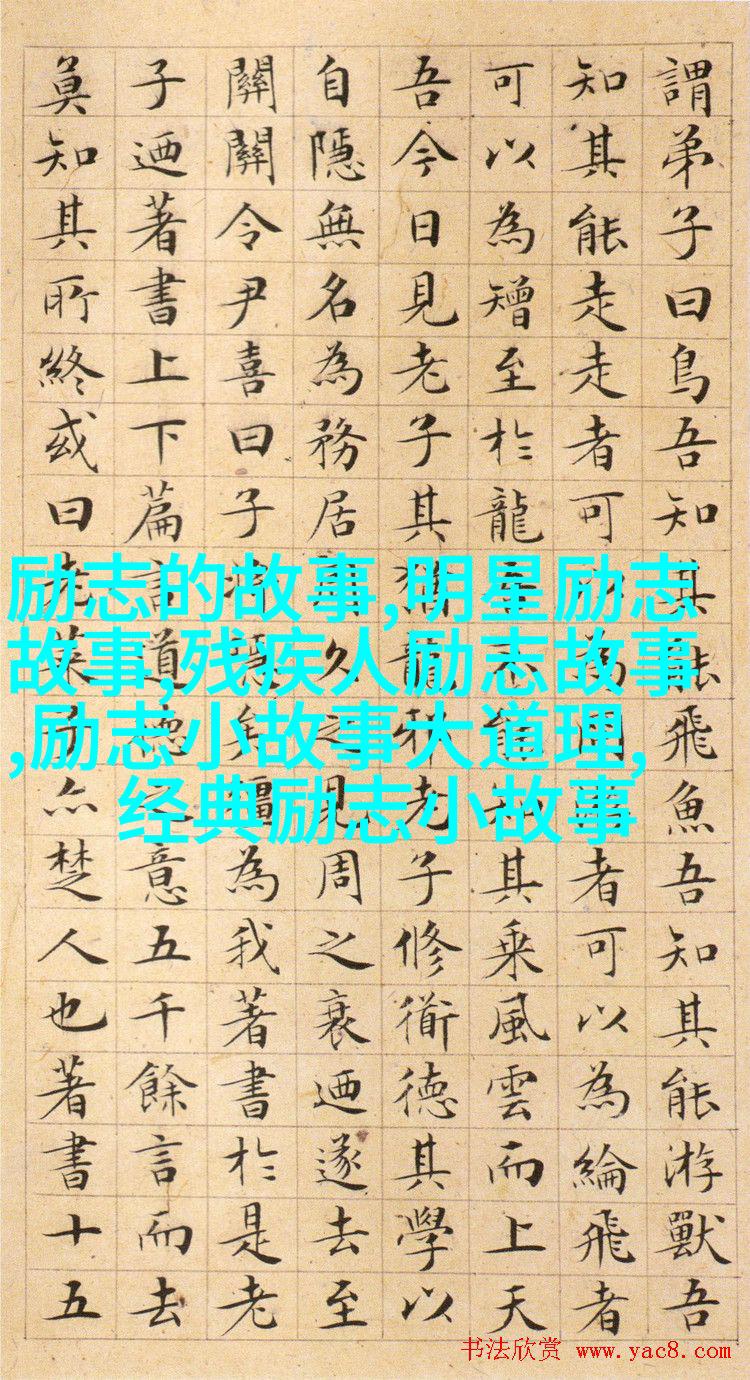 謂弟子曰鳥吾知其能飛魚吾知其能游獸吾
知其能走走者可以為罔者可以為綸飛者
可以為矰至於龍吾不能知其乘風雲而上天
吾今日見老子其猶龍邪老子修衜德其學以
自隱無名為務居周久之見周之衰迺遂去至
關關令尹喜曰子將隱矣彊為我著書於是老
子迺著書上下篇言道德之意五千餘言而去
莫知其所終或曰老萊子亦楚人也著書十五
励志的故事,明星励志
故事,残疾人励志故事
,励志小故事大道理,
经典励志小故事
书法欣赏 www.yac8.com